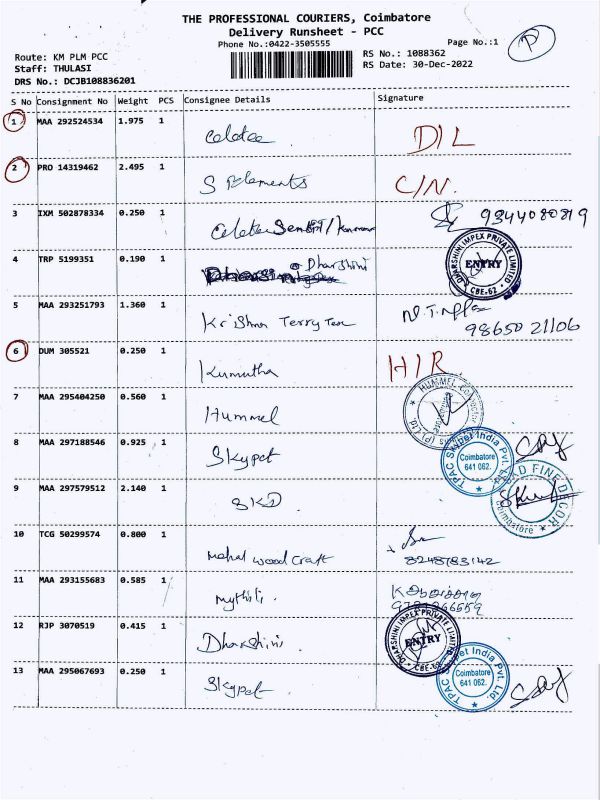 THE PROFESSIONAL COURIERS, Coimbatore
Delivery Runsheet - PCC
Phone No.:0422-3505555
Page No.:1
P
Route: KM PLM PCC
RS No.: 1088362
Staff: THULASI
RS Date: 30-Dec-2022
DRS No.: DCJB108836201
S No Consignment No Weight PCS Consignee Details Signature
1 MAA 292524534 1.975 1 Celetee D/L
2 PRO 14319462 2.495 1 S Elements C/N.
3 IXM 502878334 0.250 1 9344080819
4 TRP 5199351 0.190 1 Dharshini
DHARSHINI IMPEX PRIVATE LIMITED
ENTRY
CBE-62
5 MAA 293251793 1.360 1 Krishna Terry Tex
98650 21106
6 DUM 305521 0.250 1 Kumutha H/R
7 MAA 295404250 0.560 1 Hummel
HUMMEL
(P) Ltd.
8 MAA 297188546 0.925 1 Skypet
TPAC Skypet India Pvt. Ltd.
Coimbatore
641 062.
9 MAA 297579512 2.140 1 SKD
FINE DECOR
Coimbatore
10 TCG 50299574 0.800 1 Mahal wood craft
8248783142
11 MAA 293155683 0.585 1 Mythili.
12 RJP 3070519 0.415 1 Dharshini
DHARSHINI IMPEX PRIVATE LIMITED
ENTRY
CBE-62
13 MAA 295067693 0.250 1 Skypet
TPAC Skypet India Pvt. Ltd.
Coimbatore
641 062.